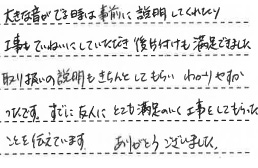 大きな音がでる時は事前に説明してくれたり
工事もていねいにしていただき後片付けも満足できました
取り扱いの説明もきちんとしてもらいわかりやすか
ったです。すでに友人にとても満足のいく工事をしてもらった
ことを伝えています。ありがとうございました。